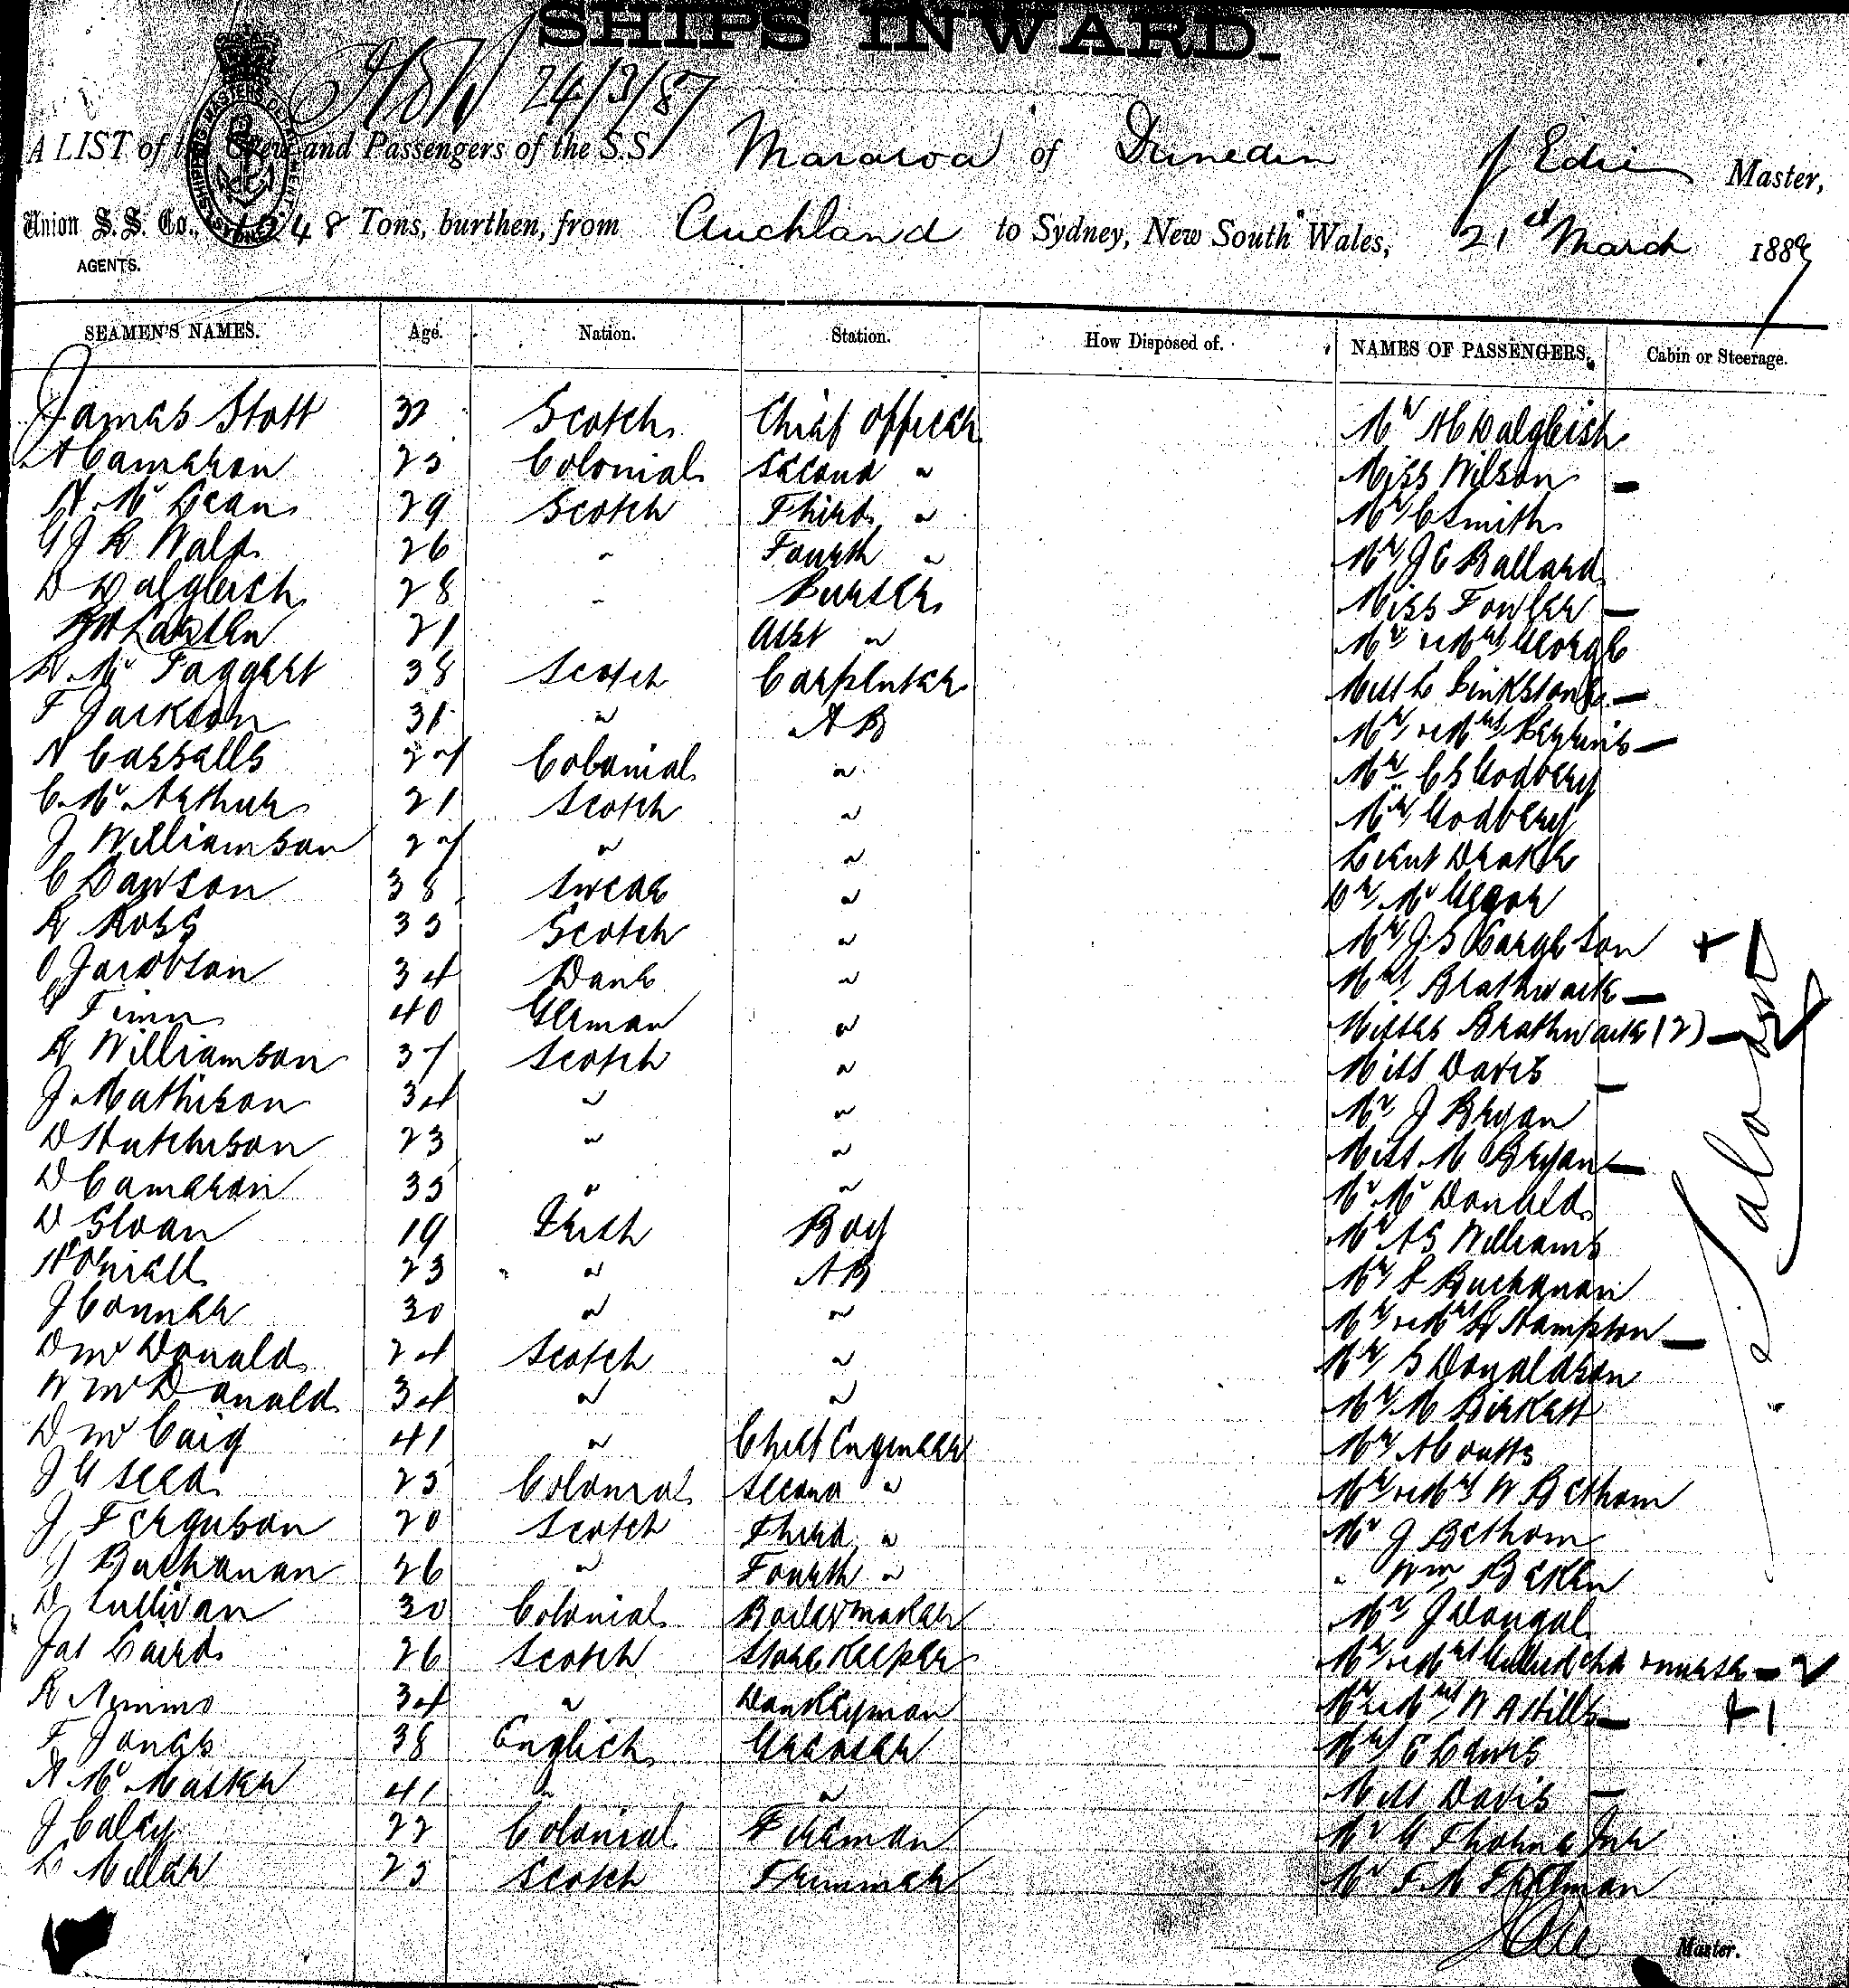 SHIPS INWARD.
24/3/87
A LIST of the Crew and Passengers of the S.S. Mararoa of Dunedin J Edie Master,
Union S.S. Co., 1248 Tons, burthen, from Auckland to Sydney, New South Wales, 21st March 1887
AGENTS.
SEAMEN'S NAMES. Age. Nation. Station. How Disposed of. NAMES OF PASSENGERS. Cabin or Steerage.
James Stott 32 Scotch Chief Officer Mr A Dalgleish
A Cameron 25 Colonial Second " Miss Wilson —
A. Mc Lean 29 Scotch Third " Mr C Smith
G J R Wald 26 " Fourth " Mr J C Ballard
D Dalgleish 28 " Purser Miss Fowler —
21 Asst " Mr & Mrs George
R Mc Taggert 38 Scotch Carpenter Miss L Linkstone —
F Jackson 31 " AB Mr & Mrs —
N Cassells 27 Colonial " Mr C S Godbery
C. Mc Arthur 21 Scotch " Mr Godbery
J Williamson 27 " " Lieut Drake
C Dawson 38 Swede " Mc Gregor
R Ross 35 Scotch " Mr J. S +
O Jacobson 34 Dane " Mrs Brathwaite —
G Finn 40 German " Misses Brathwaite (2) —
R Williamson 37 Scotch " Miss Davis —
J. Mathison 34 " " Mr J Bryan
D Hutchison 23 " " Miss M Bryan —
D Cameron 35 " " Mr Mc Donald
D Sloan 19 Irish Boy Mr A S Williams
H O'Niell 23 " AB Mr Buchanan
J Conner 30 " " Mr & Mrs Hampton —
D Mc Donald 24 Scotch " Mr G Donaldson
W Mc Donald 34 " " Mr M Birkett
D Mc Caig 41 " Chief Engineer Mr A Coutts
J G Seed 25 Colonial Second " Mr & Mrs W Betham
J Ferguson 20 Scotch Third " Mr J Betham
J Buchanan 26 " Fourth " " Wm Beken
D Sullivan 30 Colonial Boilermaker Mr J Dougal
Jas Laird 26 Scotch Store Keeper Mr & Mrs chd & nurse — 2
R Nimmo 34 " Donkeyman Mr & Mrs W A Hills — +1
F Jones 38 English Greaser Mrs E Lewis
A. Mc Master 41 " " Miss Davis —
J Caley 22 Colonial Fireman Mr G Thorne Jnr
L Millar 25 Scotch Trimmer Mr F. M
Saloon
J Edie Master.